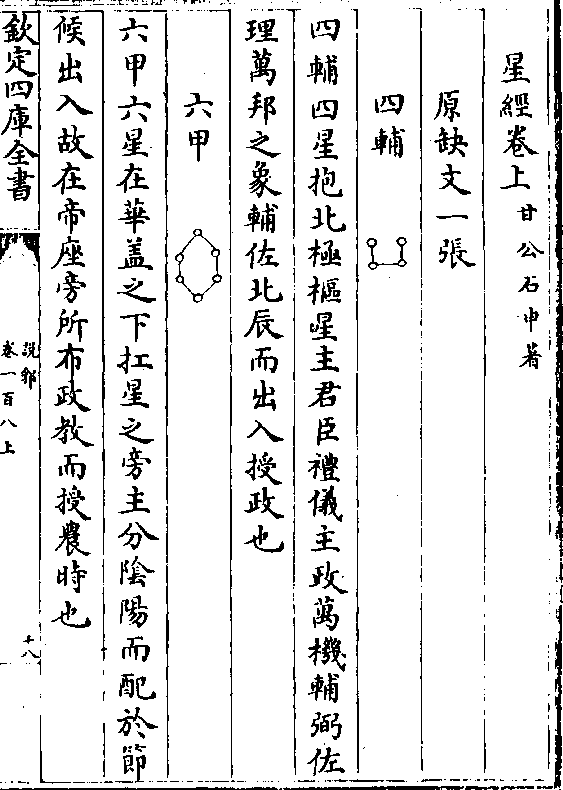 星經卷上甘公石申著
原缺文一張
四輔
四輔四星抱北極樞星主君臣禮儀主政萬機輔弼佐
理萬邦之象輔佐北辰而出入授政也
六甲
六甲六星在華盖之下扛星之旁主分陰陽而配於節
候出入故在帝座旁所布政教而授農時也
欽定四庫全書
說郛
卷一百八上
十八